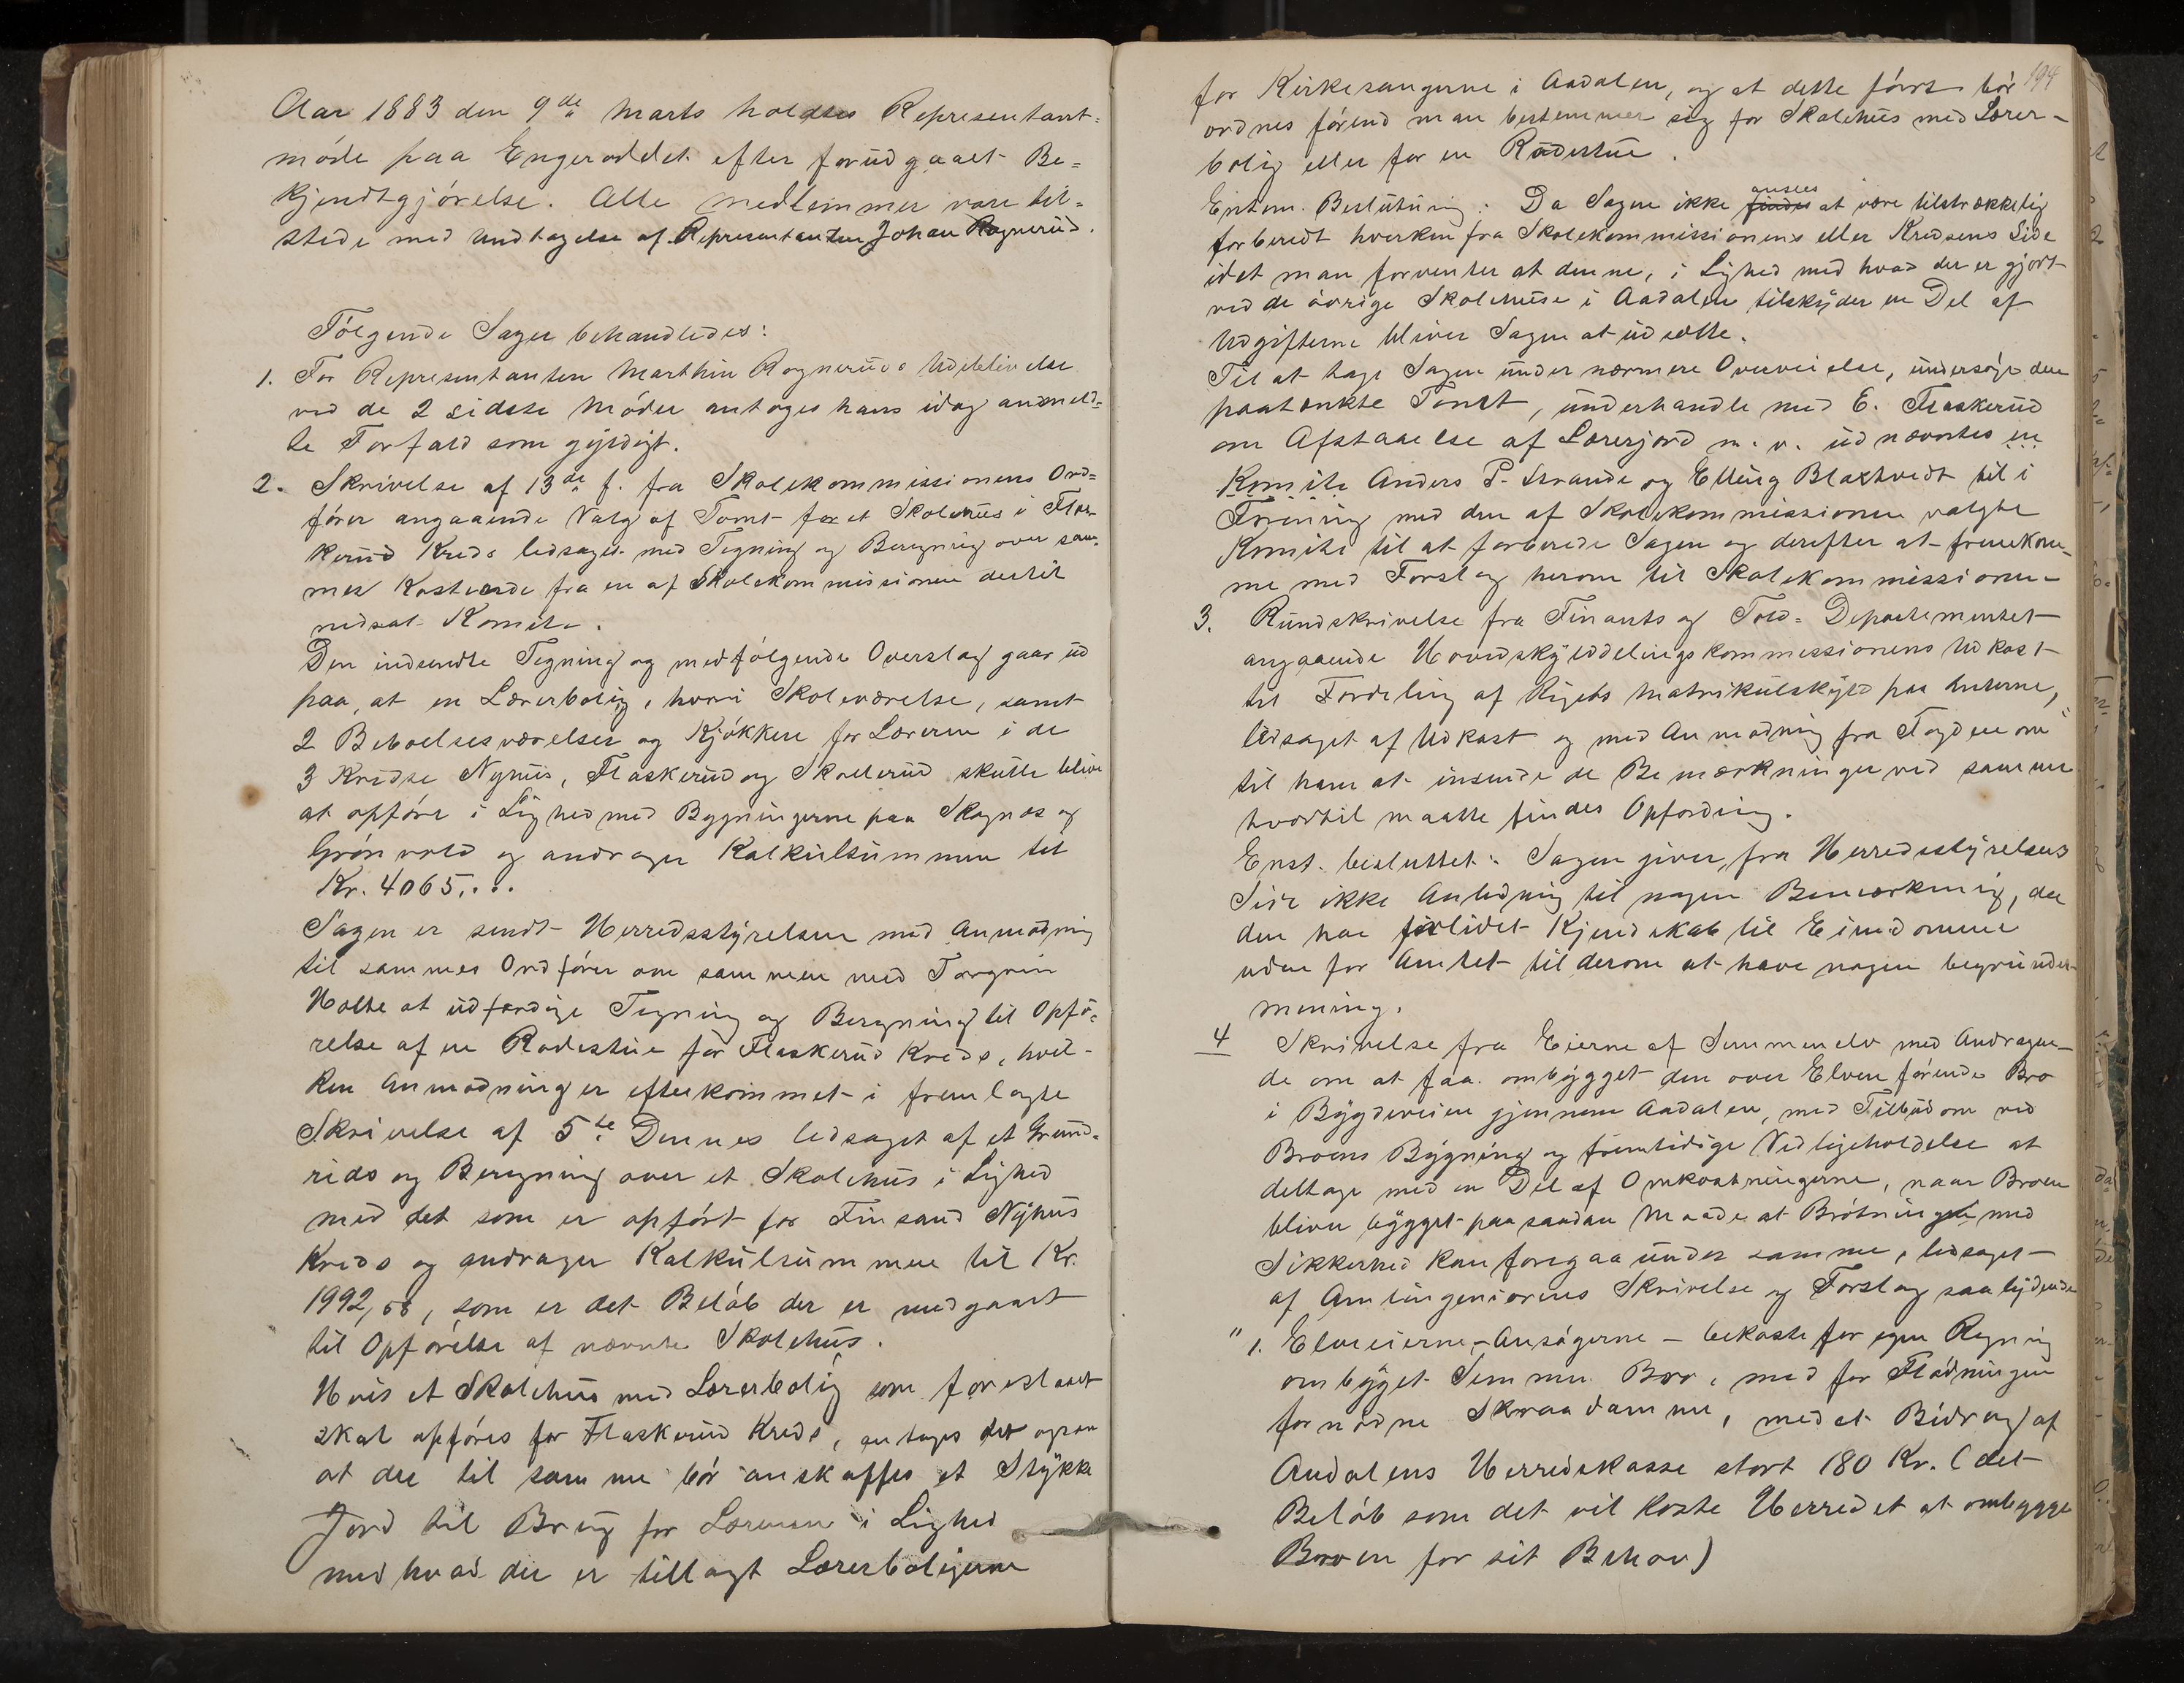 Aar 1883 den 9de Marts holdtes Representant=
møde paa Engeroddet efter forudgaaet Be=
kjendtgjørelse. Alle Medlemmer vare til=
stede med Undtagelse af Representanten Johan Rognerud.
Følgende Sager behandledes:
1. For Representanten Marthin Rogneruds Udeblivelse
ved de 2 sidste Møder antoges hans idag anmeld=
te Forfald som gyldigt.
2. Skrivelse af 13de f. fra Skolekommissionens Ord=
fører angaaende Valg af Tomt for et Skolehus i Flas=
kerud Kreds ledsaget med Tegning og Beregning over sam=
mes Kostende fra en af Skolekommissionen dertil
nedsat Komite.
Den indsendte Tegning og medfølgende Overslag gaar ud
paa, at en Lærerbolig, hvori Skoleværelse, samt
2 Beboelsesværelser og Kjøkken for Læreren i de
3 Kredse Nyhus, Flaskerud og Skollerud skulle blive
at opføre i Lighed med Bygningerne paa Skagnes og
Grønvold og andrager Kalkulsummen til
Kr. 4065,..
Sagen er sendt Herredsstyrelsen med Anmodning
til sammes Ordfører om sammen med Torgrim
Holte at udfærdige Tegning og Beregning til Opfø=
relse af en Rodestue for Flaskerud Kreds, hvil-
ken Anmodning er efterkommet i fremlagte
Skrivelse af 5te Dennes ledsaget af et Grund=
rids og Beregning over et Skolehus i Lighed
med det som er opført for Finsand Nyhus
Kreds og andrager Kalkulsummen til Kr.
1992,58, som er det Beløb der er medgaaet
til Opførelse af nævnte Skolehus.
Hvis et Skolehus med Lærerbolig som foreslaaet
skal opføres for Flaskerud Kreds, antages der ogsaa
at der til samme bør anskaffes et Stykke
Jord til Brug for Læreren i Lighed
med hvad der er tillagt Lærerboligerne
194
for Kirkesangerne i Aadalen, og at dette først bør
ordnes førend man bestemmer sig for Skolehus med Lærer-
bolig eller for en Rodestue.
Enstem. Beslutning: Da Sagen ikke findes ansees at være tilstrækkelig
forberedt hverken fra Skolekommissionens eller Kredsens Side
idet man forventer at denne, i Lighed med hvad der er gjort
ved de øvrige Skolehuse i Aadalen tilskyder en Del af
Udgifterne bliver Sagen at udsætte.
Til at tage Sagen under nærmere Overveielse, undersøge den
paatænkte Tomt, underhandle med E. Flaskerud
om Afstaaelse af Lærerjord m. v. udnævntes en
Komite Anders P. Strande og Elling Blakstvedt til i
Forening med den af Skolekommissionen valgte
Komite til at forberede Sagen og derefter at fremkom-
me med Forslag herom til Skolekommissionen-
3. Rundskrivelse fra Finants og Told= Departementet
angaaende Hovedskylddelingskommissionens Udkast
til Fordeling af Rigets Matrikulskyld paa Amterne,
ledsaget af Udkast og med Anmodning fra Fogden om
til ham at insende de Bemærkninger ved samme
hvortil maatte findes Opfordring.
Enst. besluttet: Sagen giver fra Herredsstyrelsens
Side ikke Anledning til nogen Bemærkning, da
den har forlidet Kjendskab til Eiendomme
uden for Amtet til derom at have nogen begrundet
mening.
4 Skrivelse fra Eierne af Semmenelv med Andragen-
de om at faa ombygget den over Elven førende Bro
i Bygdeveien gjennem Aadalen, med Tilbud om ved
Broens Bygning og fremtidige Vedligeholdelse at
deltage med en Del af Omkostningerne, naar Broen
bliver bygget paa saadan Maade at Brøtningen med
Sikkerhed kan foregaa under samme, ledsaget
af Amtingeniørens Skrivelse og Forslag saalydende
"1. Elveeierne - Ansøgerne - bekoste for egen Regning
ombygget Semmen Bro, med for Flødningen
fornødne Skraadamme, med et Bidrag af
Aadalens Herredskasse stort 180 Kr. (det
Beløb som det vil koste Herredet at ombygge
Broen for sit Behov)